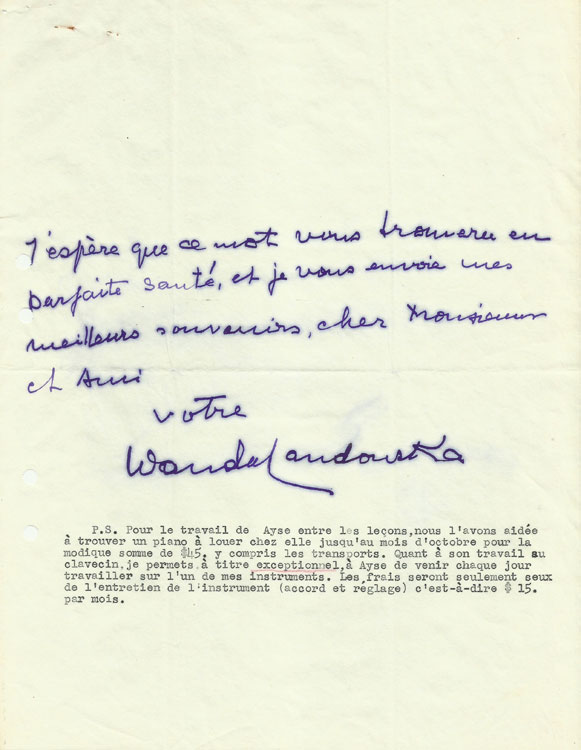 J'espère que ce mot vous trouvera en
parfaite santé, et je vous envoie mes
meilleurs souvenirs, cher Monsieur
et Ami
votre
Wanda Landowska
P.S. Pour le travail de Ayse entre les leçons,nous l'avons aidée
à trouver un piano à louer chez elle jusqu'au mois d'octobre pour la
modique somme de $45, y compris les transports. Quant à son travail au
clavecin,je permets,à titre exceptionnel,à Ayse de venir chaque jour
travailler sur l'un de mes instruments. Les frais seront seulement seux
de l'entretien de l'instrument (accord et réglage) c'est-à-dire $ 15.
par mois.